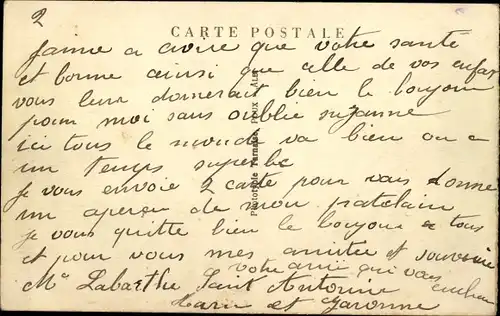 2
CARTE POSTALE
J'aime a croire que votre santé
et bonne ainsi que celle de vos enfan
vous leur donnerait bien le bonjour
pour moi sans oublié suzanne
ici tous le monde va bien on a
un temps superbe
je vous envoie 2 carte pour vous donne
un aperçu de mon patelain
je vous quitte bien le bonjour a tous
et pour vous mes amitiée et souvenir
votre amie qui vous
Me Labarthe Saint Antonin
Tarn et Garonne